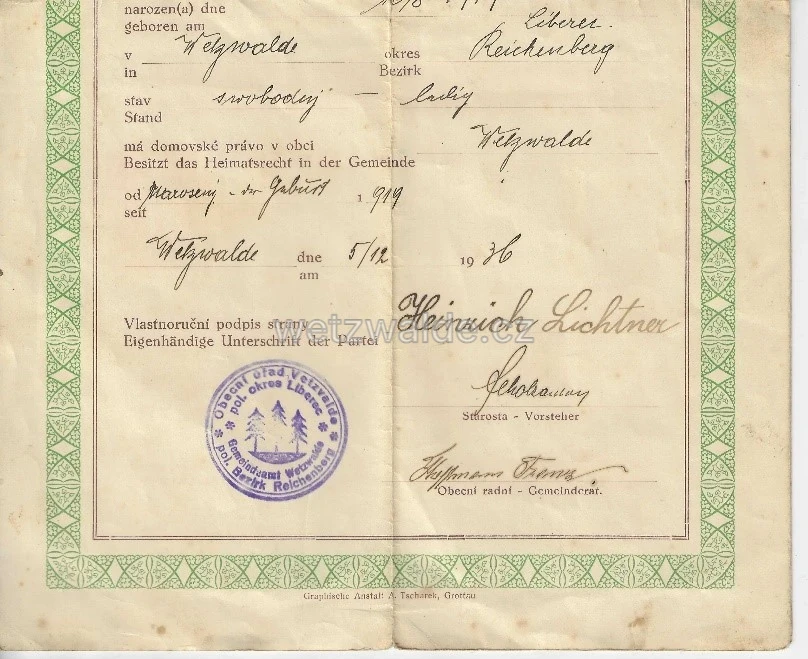 narozen(a) dne
geboren am
v Wetzwalde okres Liberec
in Bezirk Reichenberg
stav svobodný – ledig
Stand
má domovské právo v obci
Besitzt das Heimatsrecht in der Gemeinde Wetzwalde
od narození – der Geburt 1919
seit
Wetzwalde dne 5/12 1936
am
Vlastnoruční podpis strany
Eigenhändige Unterschrift der Partei Heinrich Lichtner
wetzwalde.cz
Obecní úřad Vetzwalde
pol. okres Liberec
Gemeindeamt Wetzwalde
pol. Bezirk Reichenberg
Starosta - Vorsteher
Franz
Obecní radní - Gemeinderat.
Graphische Anstalt A. Tscharek, Grottau